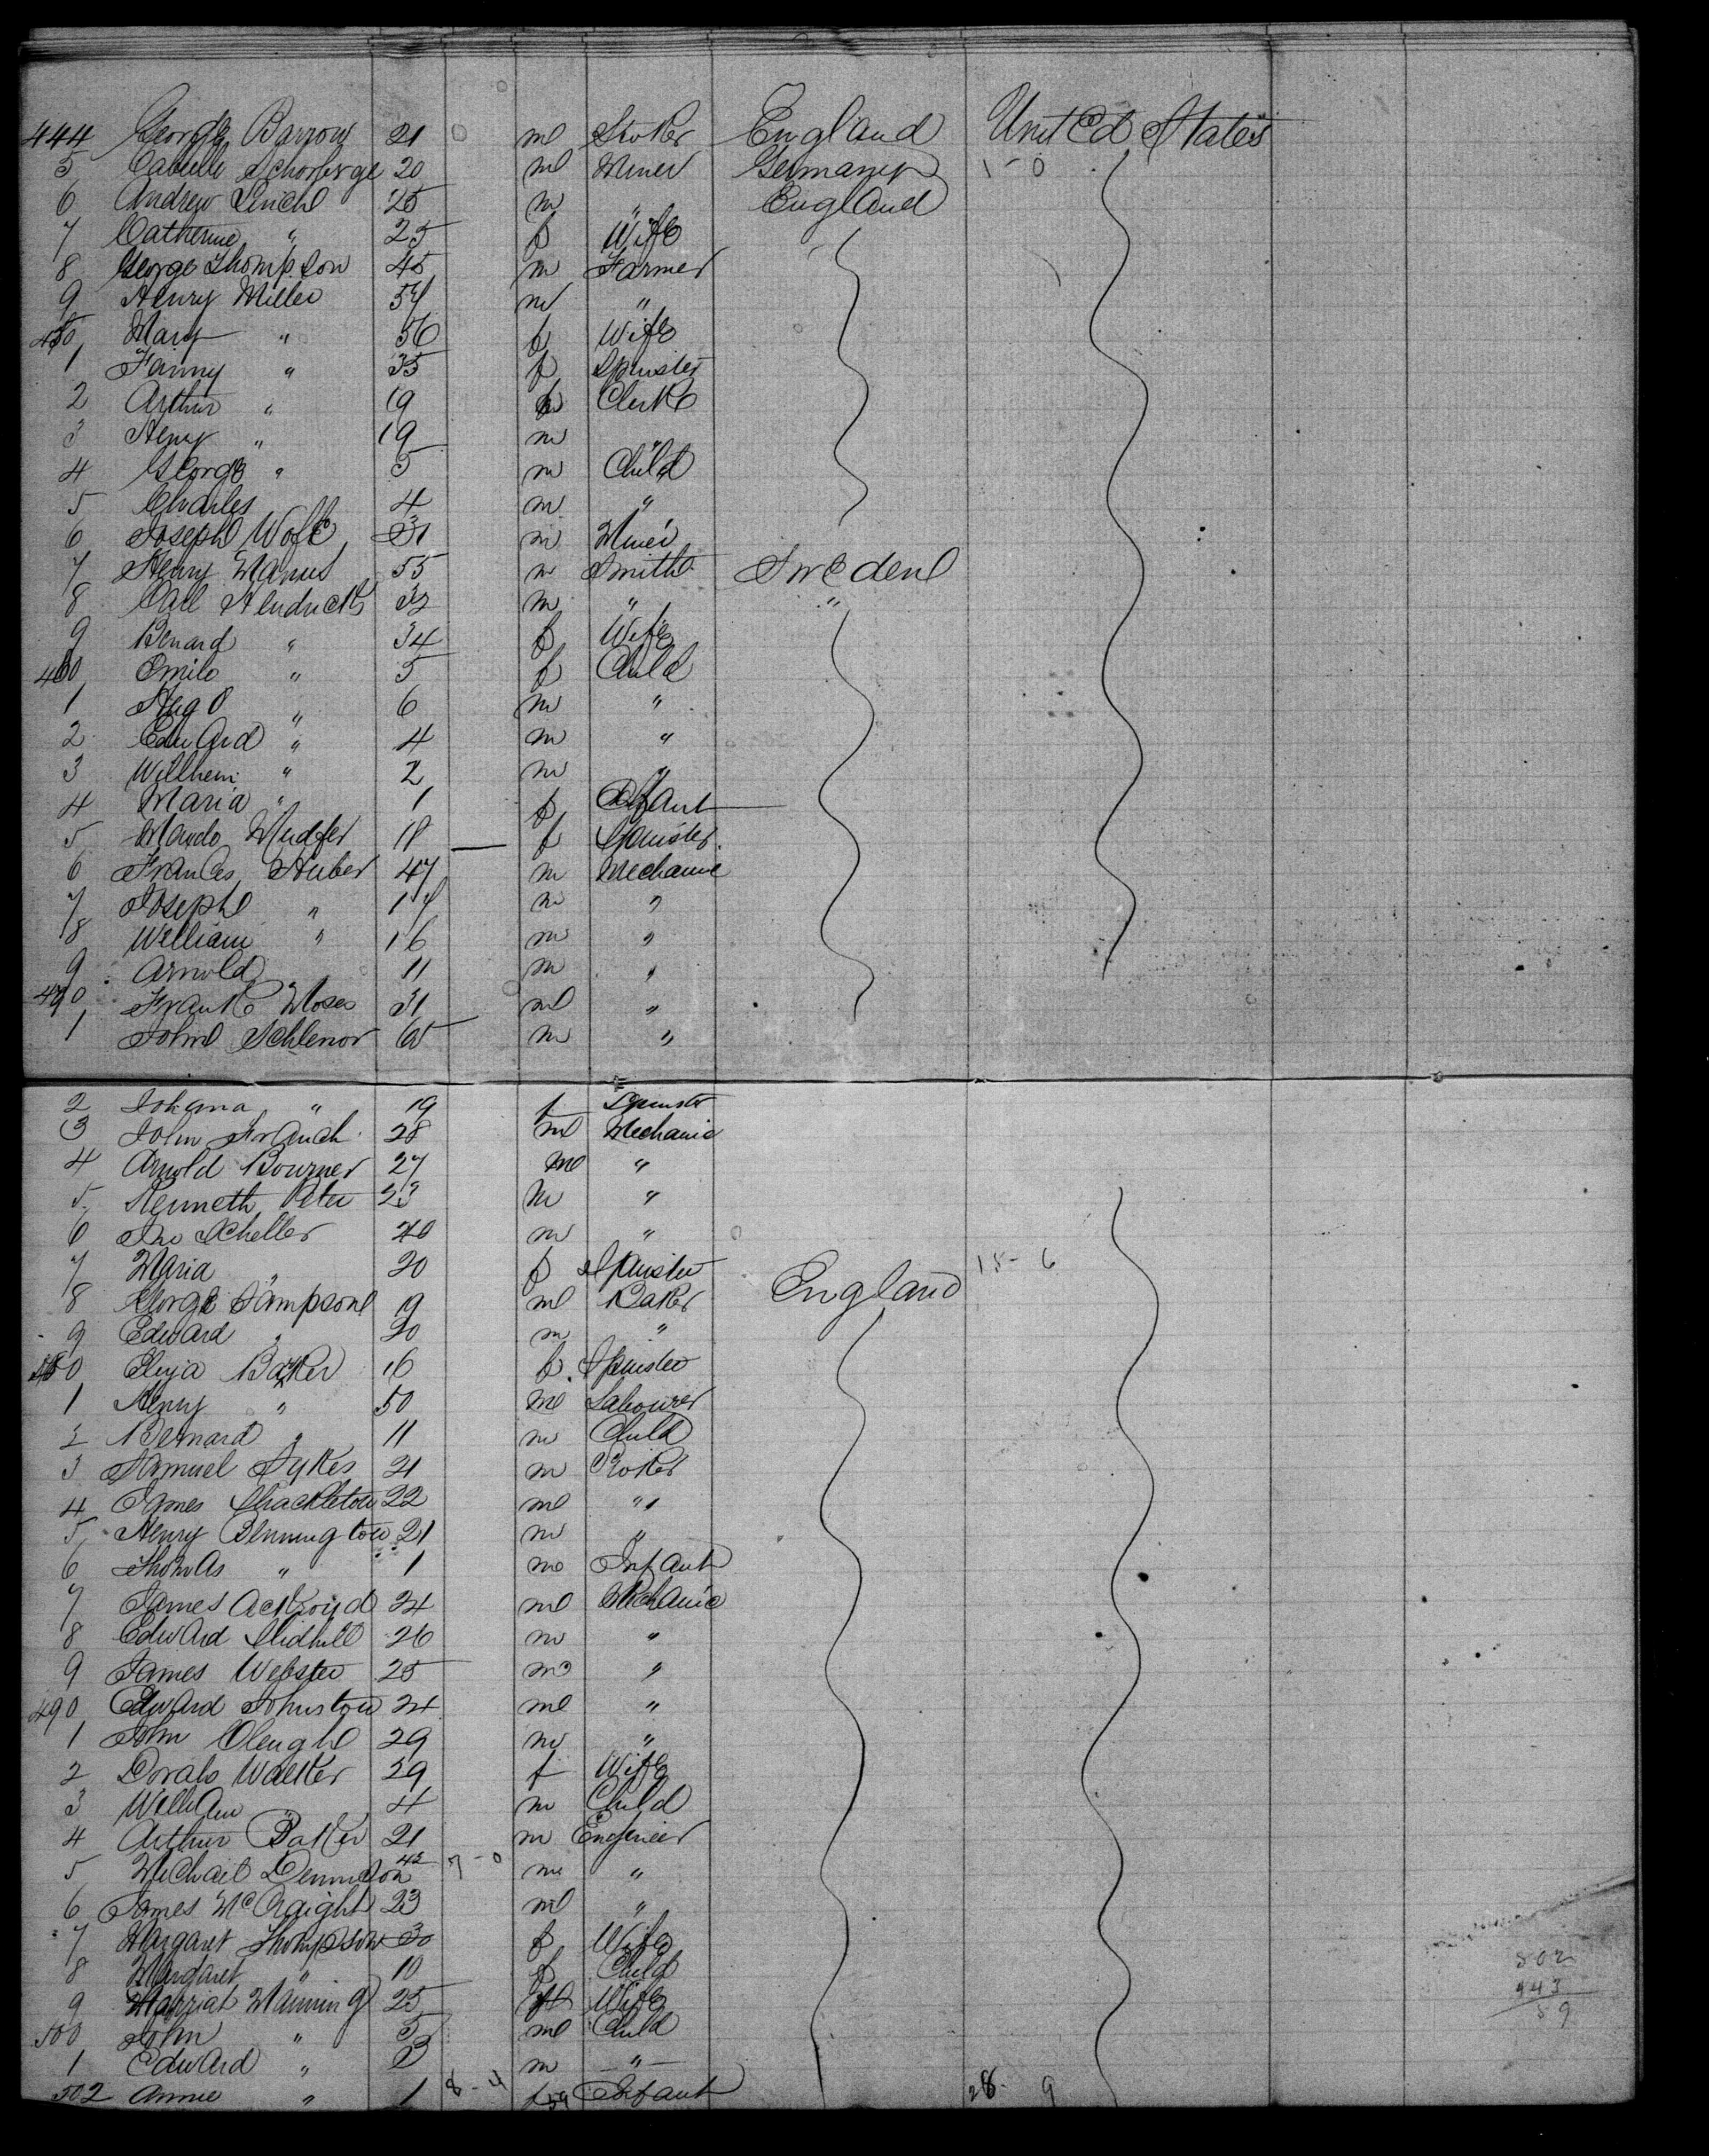 444 George Barrow 21 m Stoker England United States
5 Schorberge 20 m Miner Germany 1-0
6 Andrew Linch 25 m " England
7 Catherine " 25 f Wife
8 George Thompson 45 m Farmer
9 Henry Miller 54 m "
450 Mary " 56 f Wife
1 Fanny " 35 f Spinster
2 Arthur " 19 Clerk
3 Heny " 19 m "
4 George " 5 m Child
5 Charles 4 m "
6 Joseph Wolfe 31 m Miner
7 Henry Manus 55 m Smith Sweden
8 Carl Hendricks 32 m " "
9 Benard " 34 f Wife
460 Emile " 5 f Child
1 Hugo " 6 m "
2 Edward " 4 m "
3 Willhem " 2 m "
4 Maria " 1 f Infant
5 18 f Spinster
6 Frances Huber 47 m Mechanic
7 Joseph " 17 m "
8 William " 16 m "
9 Arnold 11 m "
470 Frank Moses 31 m "
1 John Schlenor m "
2 Johana " 19 f Spinster
3 John 28 m Mechanic
4 Arnold Bourner 27 m "
5 Kenneth Peter 23 m "
6 Jno Scheller 40 m "
7 Maria " 20 f Spinster 18-6
8 George Sampson 19 m Baker England
9 Edward " 20 m "
480 Eliza Baker 16 f Spinster
1 Henry " 50 m Labourer
2 Bernard " 11 m Child
3 Samuel Sykes 21 m
4 James Shackleton 22 m "
5 Henry Bennington 21 m "
6 Thomas " 1 m Infant
7 James Ackroyd 24 m Mechanic
8 Edward 26 m "
9 James Webster 25 m "
490 Edward Johnston 24 m "
1 John Cleugh 29 m "
2 Walker 29 f Wife
3 William " 4 m Child
4 Arthur Baker 21 m Engineer
5 Michael Dennison 42 7-0 m "
6 James McCraight 23 m "
7 Margaret Thompson 30 f Wife
8 Margaret " 10 f Child
9 Manning 25 f Wife
500 John " 5 m Child
1 Edward " 3 m "
502 Annie " 1 8-4 f 59 Infant 28-9
502
443
59